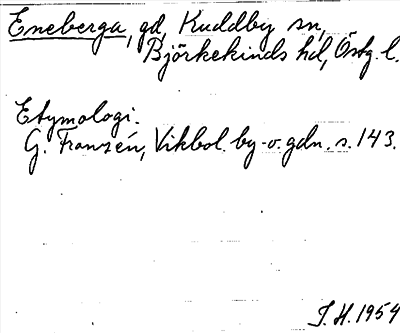 Eneberga, gd, Kuddby sn,
Björkekinds hd, Östg. l.
Etymologi.
G. Franzén, Vikbol. by- o. gdn. s. 143.
I. H. 1954